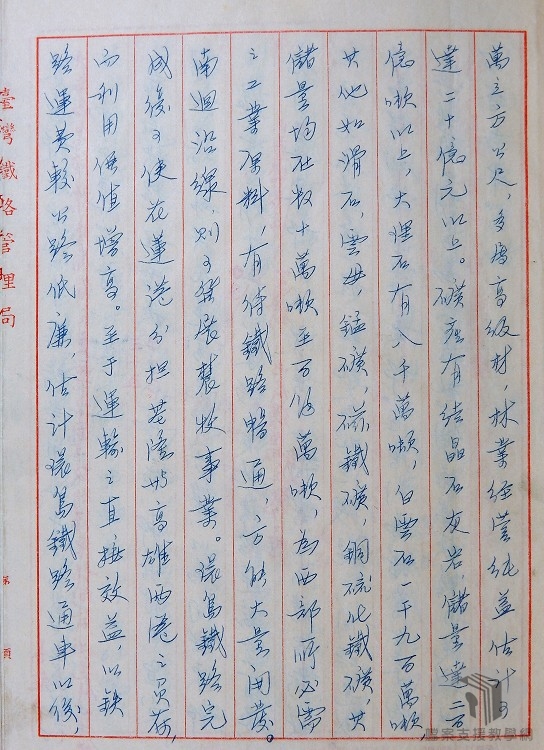 萬立方公尺，多屬高級材，林業經營純益估計可
達二十億元以上。礦產有結晶石灰岩，儲量達二百
億噸以上，大理石有八千萬噸，白雲石一千九百萬噸，
其他如滑石，雲母，錳礦，磁鐵礦，銅硫化鐵礦，其
儲量均在數十萬噸至百餘萬噸，為西部所必需
之工業原料，有待鐵路暢通，方能大量開發。
南迴沿線，則可發展農牧事業。環島鐵路完
成後可使花蓮港分担基隆與高雄兩港之負荷，
而利用價值增高。至于運輸之直接效益，以鐵
路運費較公路低廉，估計環島鐵路通車以後，
臺灣鐵路管理局
第 頁
檔案支援教學網